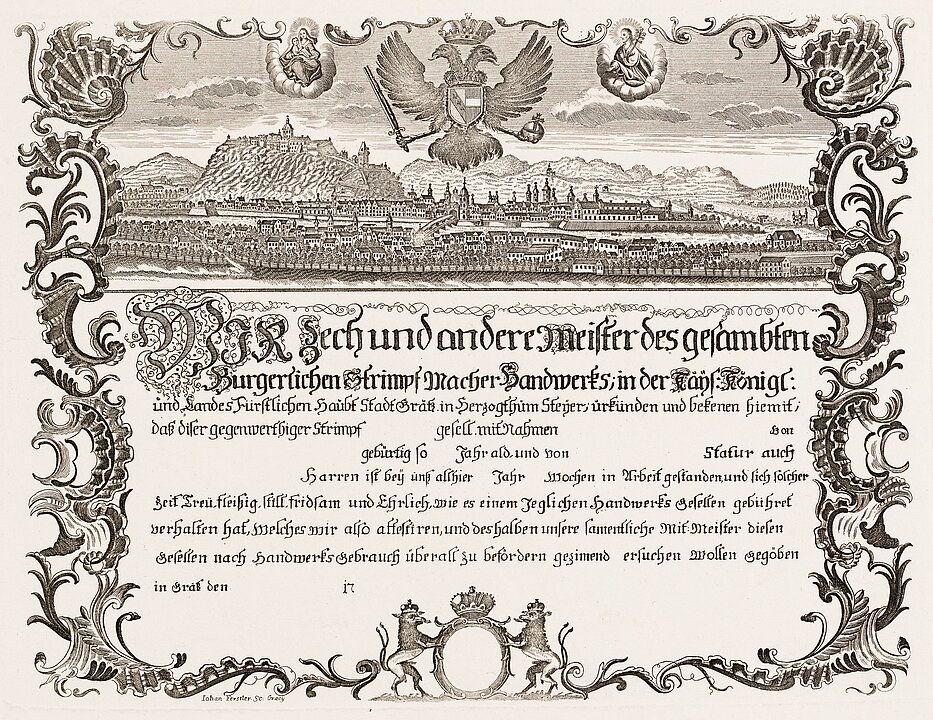 WIR Zech und andere Meister des gesambten
Burgerlichen Strimpf Macher-Handwerks, in der Kayß: Königl:
und Landes Fürstlichen Haubt Stadt Grätz, in Herzogthum Steyer, urkünden und bekenen hiemit,
daß diser gegenwerthiger Strimpf gesell, mit Nahmen von
gebürtig so Jahr ald, und von Statur auch
Harren ist beÿ unß alhier Jahr Wochen in Arbeit gestanden, und sich solcher
Zeit Treü, fleißig, still, fridsam und Ehrlich, wie es einem Jeglichen Handwerks Gesellen gebühret
verhalten hat, Welches wir also attestiren, und deshalben unsere samentliche Mit-Meister diesen
Gesellen nach Handwerks-Gebrauch überall zu befördern gezimend ersuchen Wollen Gegöben
in Gräß den 17
Iohan Verstler Sc. Græcÿ